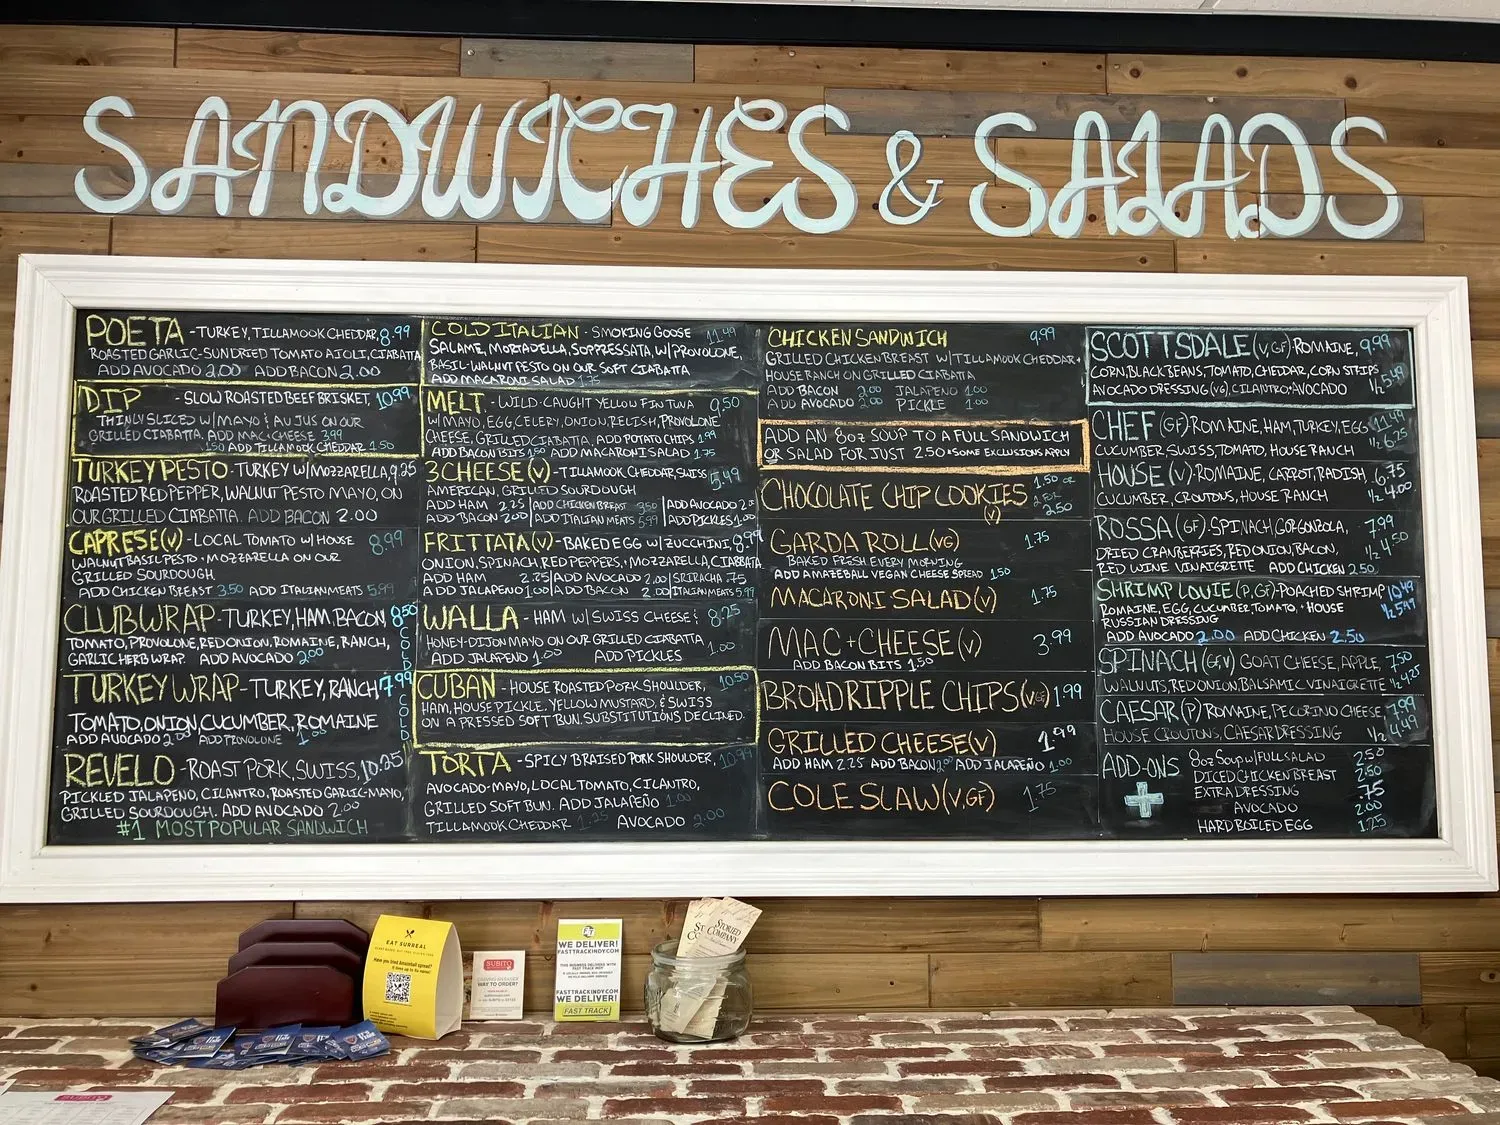 SANDWICHES & SALADS
POETA - TURKEY, TILLAMOOK CHEDDAR, 8.99
ROASTED GARLIC-SUNDRIED TOMATO AJOLI, CIABATTA
ADD AVOCADO 2.00 ADD BACON 2.00
DIP - SLOW ROASTED BEEF BRISKET, 10.99
THINLY SLICED W/ MAYO & AU JUS ON OUR
GRILLED CIABATTA. ADD MAC+CHEESE 3.99
1.50 ADD TILLAMOOK CHEDDAR 1.50
TURKEY PESTO - TURKEY W/ MOZZARELLA, 9.25
ROASTED RED PEPPER, WALNUT PESTO MAYO, ON
OUR GRILLED CIABATTA. ADD BACON 2.00
CAPRESE (V) - LOCAL TOMATO W/ HOUSE 8.99
WALNUT BASIL PESTO + MOZZARELLA ON OUR
GRILLED SOURDOUGH
ADD CHICKEN BREAST 3.50 ADD ITALIAN MEATS 5.99
CLUB WRAP - TURKEY, HAM, BACON, 8.50
TOMATO, PROVOLONE, RED ONION, ROMAINE, RANCH,
GARLIC HERB WRAP. ADD AVOCADO 2.00
COLD
TURKEY WRAP - TURKEY, RANCH 7.99
TOMATO, ONION, CUCUMBER, ROMAINE
ADD AVOCADO 2.00 ADD PROVOLONE 1.00
COLD
REVELO - ROAST PORK, SWISS, 10.25
PICKLED JALAPENO, CILANTRO, ROASTED GARLIC-MAYO,
GRILLED SOURDOUGH. ADD AVOCADO 2.00
#1 MOST POPULAR SANDWICH
COLD ITALIAN - SMOKING GOOSE 11.49
SALAME, MORTADELLA, SOPPRESSATA, W/ PROVOLONE,
BASIL-WALNUT PESTO ON OUR SOFT CIABATTA
ADD MACARONI SALAD 1.75
MELT - WILD-CAUGHT YELLOW FIN TUNA 9.50
W/ MAYO, EGG, CELERY, ONION, RELISH, PROVOLONE
CHEESE, GRILLED CIABATTA, ADD POTATO CHIPS 1.99
ADD BACON BITS 1.50 ADD MACARONI SALAD 1.75
3 CHEESE (V) - TILLAMOOK CHEDDAR, SWISS 5.49
AMERICAN, GRILLED SOURDOUGH
ADD HAM 2.25 ADD CHICKEN BREAST 3.50 ADD AVOCADO
ADD BACON 2.00 ADD ITALIAN MEATS 5.99 ADD PICKLES 1.00
FRITTATA (V) - BAKED EGG W/ ZUCCHINI, 8.99
ONION, SPINACH, RED PEPPERS, + MOZZARELLA, CIABATTA
ADD HAM 2.25 ADD AVOCADO 2.00 SRIRACHA .75
ADD JALAPENO 1.00 ADD BACON 2.00 ITALIAN MEATS 5.99
WALLA - HAM W/ SWISS CHEESE & 8.25
HONEY-DIJON MAYO ON OUR GRILLED CIABATTA
ADD JALAPENO 1.00 ADD PICKLES 1.00
CUBAN - HOUSE ROASTED PORK SHOULDER, 10.50
HAM, HOUSE PICKLE, YELLOW MUSTARD, & SWISS
ON A PRESSED SOFT BUN. SUBSTITUTIONS DECLINED.
TORTA - SPICY BRAISED PORK SHOULDER, 10.99
AVOCADO-MAYO, LOCAL TOMATO, CILANTRO,
GRILLED SOFT BUN. ADD JALAPEÑO 1.00
TILLAMOOK CHEDDAR 1.25 AVOCADO 2.00
CHICKEN SANDWICH 9.99
GRILLED CHICKEN BREAST W/ TILLAMOOK CHEDDAR +
HOUSE RANCH ON GRILLED CIABATTA
ADD BACON 2.00 JALAPENO 1.00
ADD AVOCADO 2.00 PICKLE 1.00
ADD AN 8OZ SOUP TO A FULL SANDWICH
OR SALAD FOR JUST 2.50 *SOME EXCLUSIONS APPLY
CHOCOLATE CHIP COOKIES (V) 1.50 OR
2 FOR
2.50
GARDA ROLL (VG) 1.75
BAKED FRESH EVERY MORNING
ADD AMAZEBALL VEGAN CHEESE SPREAD 1.50
MACARONI SALAD (V) 1.75
MAC + CHEESE (V) 3.99
ADD BACON BITS 1.50
BROAD RIPPLE CHIPS (V,GF) 1.99
GRILLED CHEESE (V) 1.99
ADD HAM 2.25 ADD BACON 2.00 ADD JALAPEÑO 1.00
COLE SLAW (V, GF) 1.75
SCOTTSDALE (V, GF) - ROMAINE, 9.99
CORN, BLACK BEANS, TOMATO, CHEDDAR, CORN STRIPS 1/2 5.49
AVOCADO DRESSING (VG), CILANTRO + AVOCADO
CHEF (GF) ROMAINE, HAM, TURKEY, EGG 11.49
CUCUMBER, SWISS, TOMATO, HOUSE RANCH 1/2 6.25
HOUSE (V) - ROMAINE, CARROT, RADISH, 6.75
CUCUMBER, CROUTONS, HOUSE RANCH 1/2 4.00
ROSSA (GF) - SPINACH, GORGONZOLA, 7.99
DRIED CRANBERRIES, RED ONION, BACON, 1/2 4.50
RED WINE VINAIGRETTE ADD CHICKEN 2.50
SHRIMP LOUIE (P, GF) - POACHED SHRIMP 10.49
ROMAINE, EGG, CUCUMBER, TOMATO, + HOUSE 1/2 5.99
RUSSIAN DRESSING
ADD AVOCADO 2.00 ADD CHICKEN 2.50
SPINACH (GF, V) GOAT CHEESE, APPLE, 7.50
WALNUTS, RED ONION, BALSAMIC VINAIGRETTE 1/2 4.25
CAESAR (P) ROMAINE, PECORINO CHEESE, 7.99
HOUSE CROUTONS, CAESAR DRESSING 1/2 4.49
ADD-ONS 8OZ SOUP W/ FULL SALAD 2.50
DICED CHICKEN BREAST 2.50
EXTRA DRESSING .75
AVOCADO 2.00
HARD BOILED EGG 1.25
EAT SURREAL
SUBITO
WAY TO ORDER?
WE DELIVER!
FASTTRACKINDY.COM
FASTTRACKINDY.COM
WE DELIVER!
FAST TRACK
STORIED
COMPANY